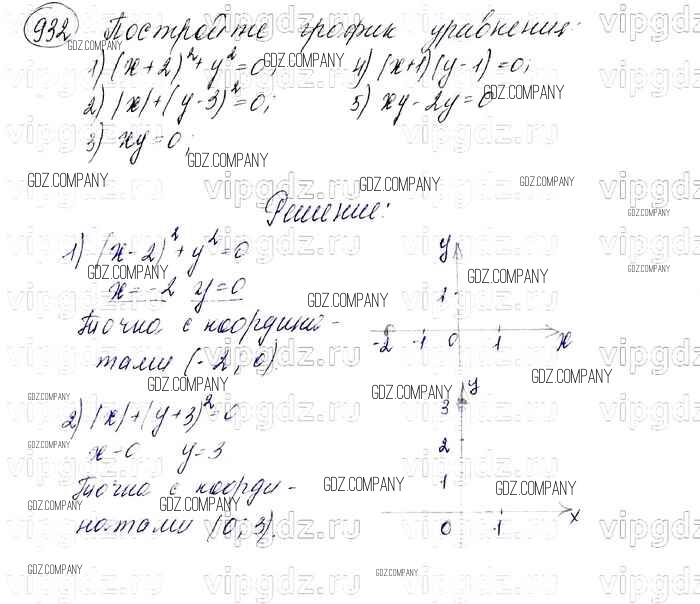 932 Постройте график уравнения:
1) (x+2)²+y²=0; 4) (x+1)(y-1)=0;
2) |x|+(y-3)²=0; 5) xy-2y=0
3) xy=0;
Решение:
1) (x-2)²+y²=0
x=-2 y=0
Точка с координа-
тами (-2; 0).
y
1
-2 -1 0 1 x
2) |x|+(y+3)²=0
x-0 y=3
Точка с коорди-
натами (0; 3).
y
3
2
1
0 1 x
GDZ.COMPANY
vipgdz.ru